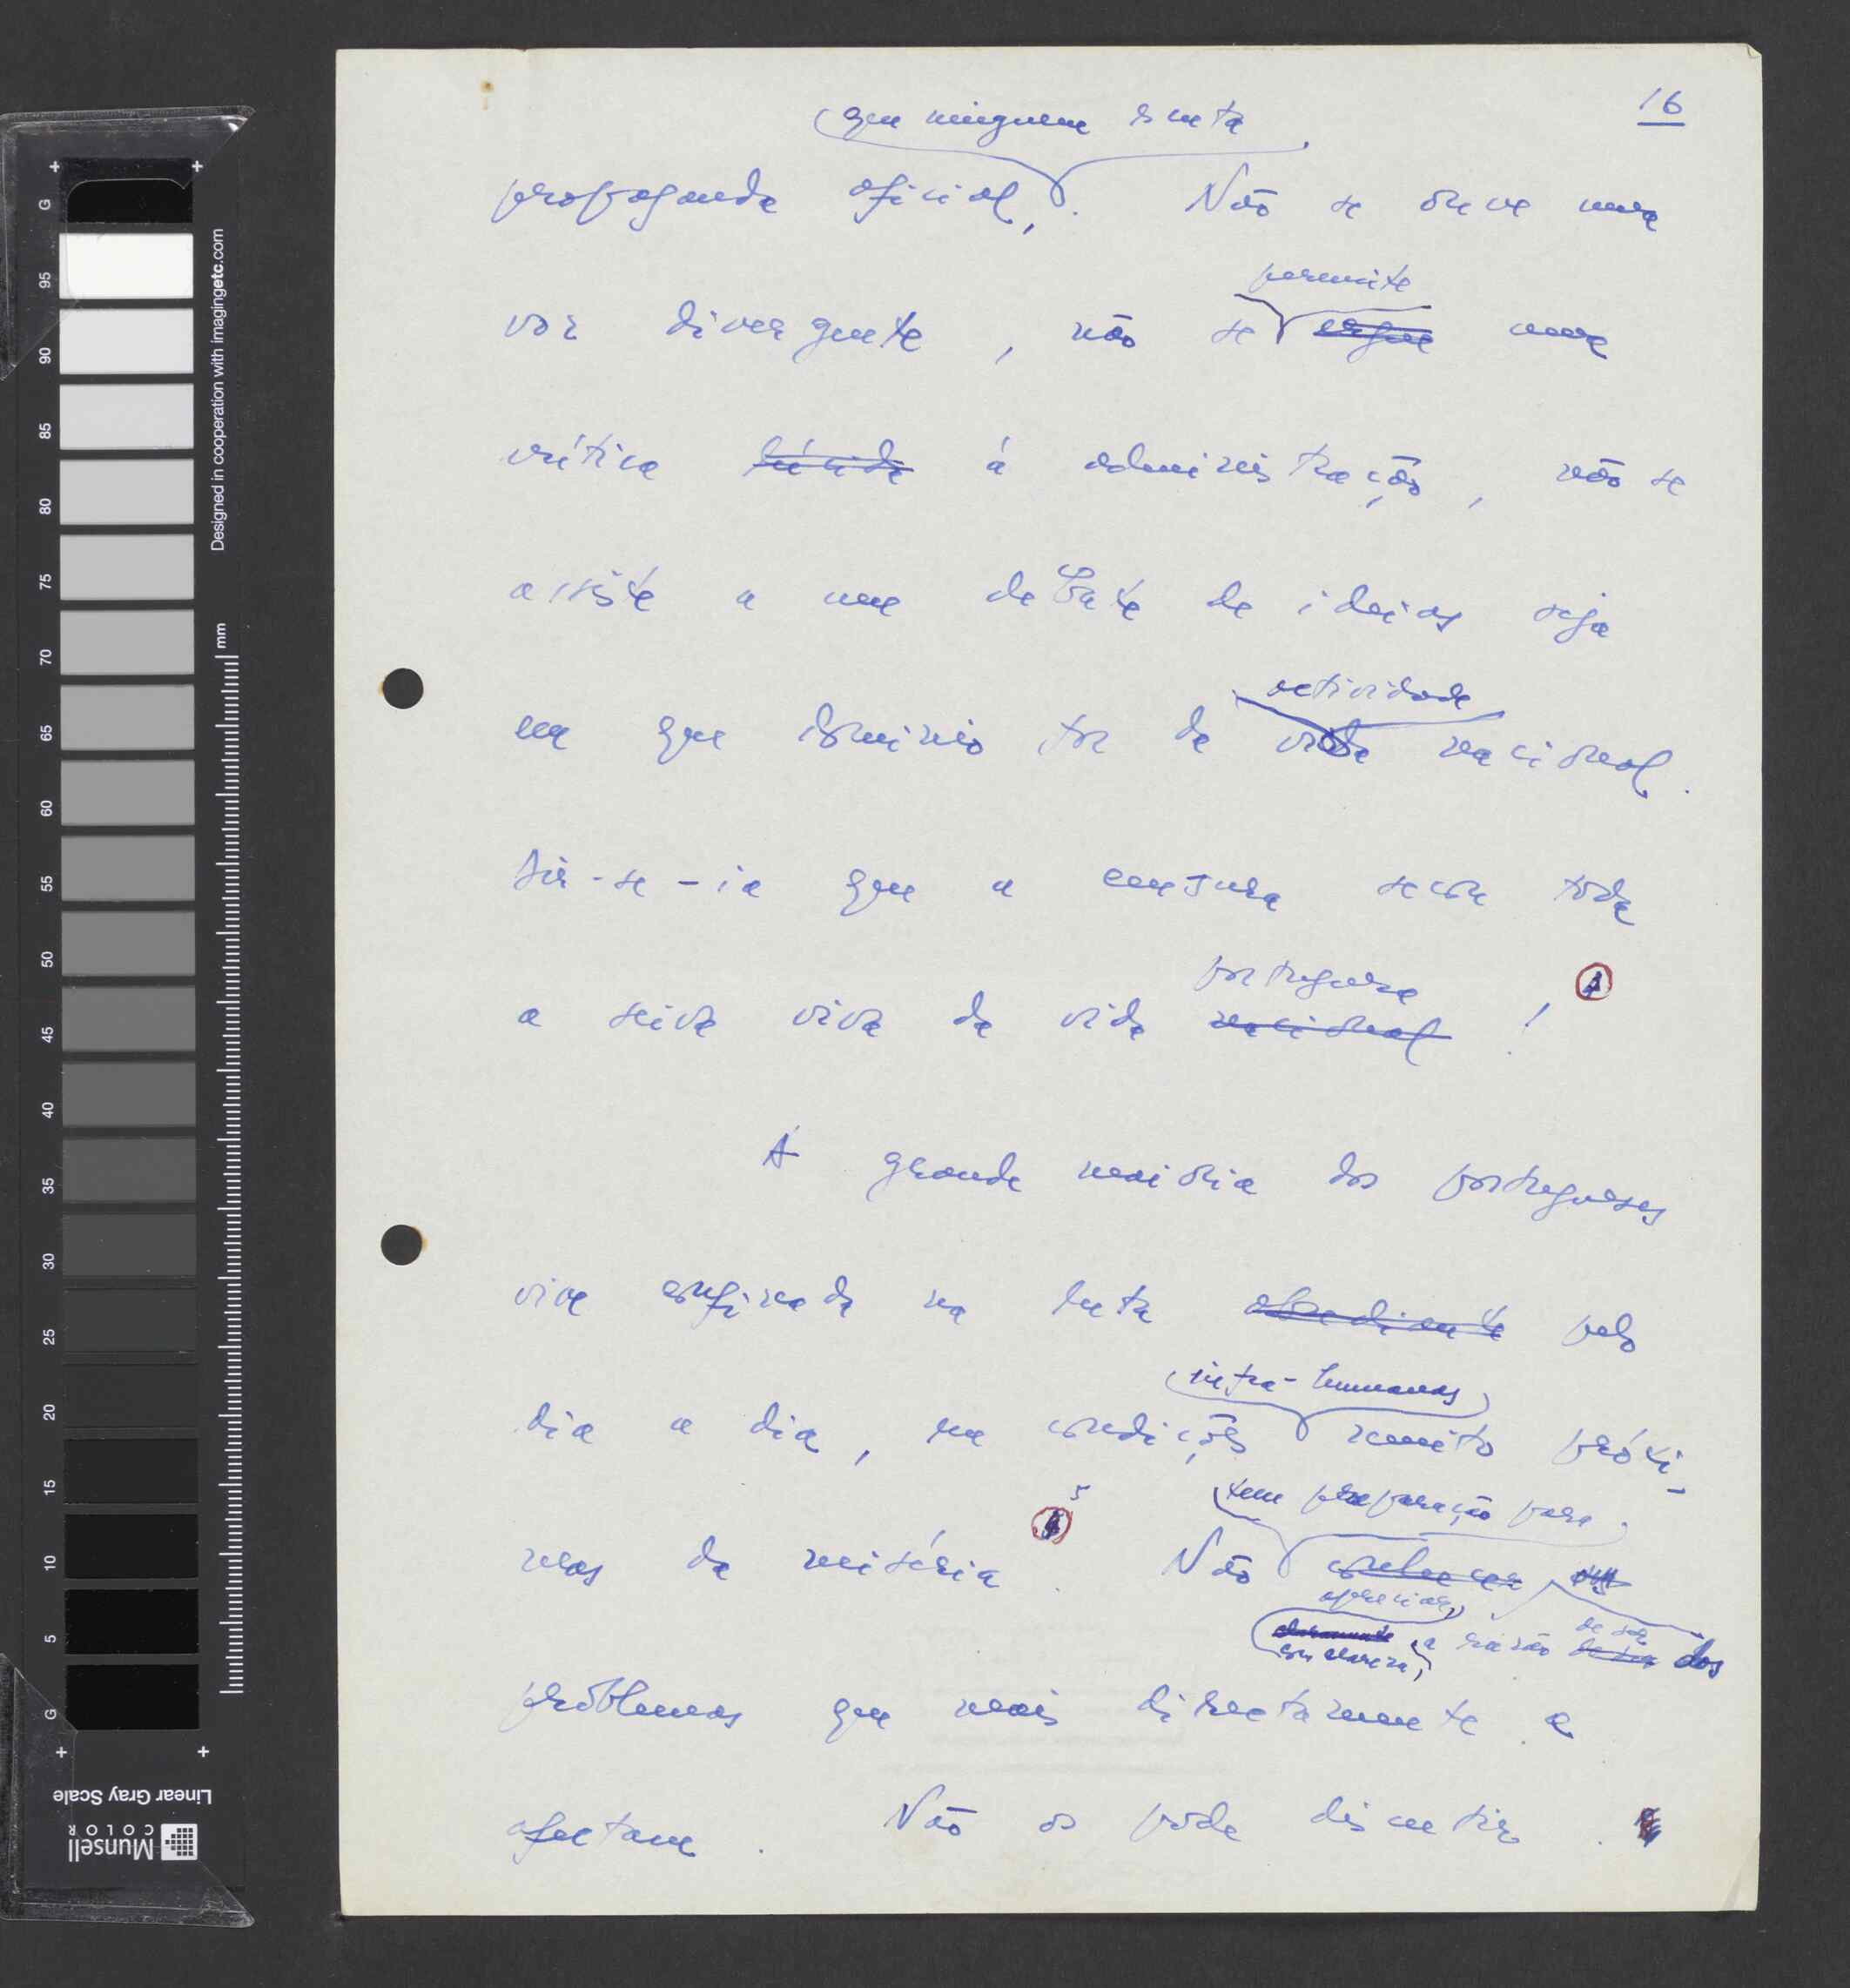 16
que ninguem escuta
propaganda oficial, . Não se ouve uma
permite
voz divergente, não se ergue uma
crítica lúcida á administração, não se
assiste a um debate de ideias seja
actividade
em que dominio for da vida nacional.
Dir-se-ia que a censura secou toda
portuguesa
a seiva viva da vida nacional !
A grande maioria dos portugueses
vive confinada na luta obediente pelo
infra-humanas
dia a dia, em condições muito próxi-
5
tem preparação para
mas da miséria. Não conhecer os
apreciar,
claramente, a razão de ser dos
com clareza,
problemas que mais directamente a
afectam. Não os pode discutir.
G 95 90 85 80 75 70 65 60 55 50 45 40 35 30 25 20 15 10 5 G
mm
Designed in cooperation with imagingetc.com
Linear Gray Scale
Munsell
COLOR